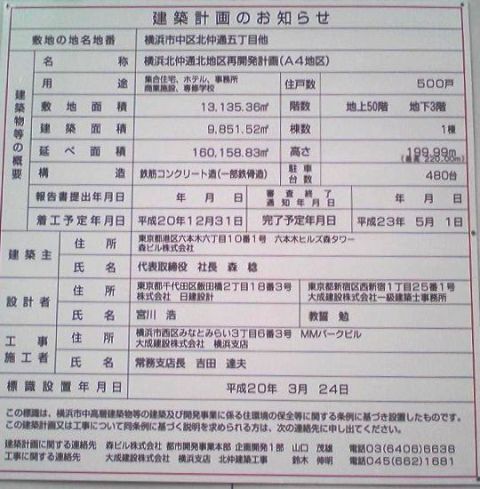 建築計画のお知らせ
敷地の地名地番 横浜市中区北仲通五丁目他
建築物等の概要
名称 横浜北仲通北地区再開発計画(A4地区)
用途 集合住宅、ホテル、事務所 住戸数 500戸
商業施設、専修学校
敷地面積 13,135.36㎡ 階数 地上50階 地下3階
建築面積 9,851.52㎡ 棟数 1棟
延べ面積 160,158.83㎡ 高さ 199.99m
(最高 220.00m)
構造 鉄筋コンクリート造(一部鉄骨造) 駐車台数 480台
報告書提出年月日 年 月 日 審査終了通知年月日 年 月 日
着工予定年月日 平成20年12月31日 完了予定年月日 平成23年 5月 1日
建築主 住所 東京都港区六本木六丁目10番1号 六本木ヒルズ森タワー
森ビル株式会社
氏名 代表取締役 社長 森 稔
設計者 住所 東京都千代田区飯田橋2丁目18番3号 東京都新宿区西新宿1丁目25番1号
株式会社 日建設計 大成建設株式会社一級建築士事務所
氏名 宮川 浩 教誓 勉
工事施工者 住所 横浜市西区みなとみらい3丁目6番3号 MMパークビル
大成建設株式会社 横浜支店
氏名 常務支店長 吉田 達夫
標識設置年月日 平成20年 3月 24日
この標識は、横浜市中高層建築物等の建築及び開発事業に係る住環境の保全等に関する条例に基づき設置したものです。
この建築計画又は工事について同条例に基づく説明を求められる方は、次の連絡先に申し出てください。
建築計画に関する連絡先 森ビル株式会社 都市開発事業本部 企画開発1部 山口 茂雄 電話03(6406)6638
工事に関する連絡先 大成建設株式会社 横浜支店 北仲建築工事 鈴木 伸明 電話045(662)1681